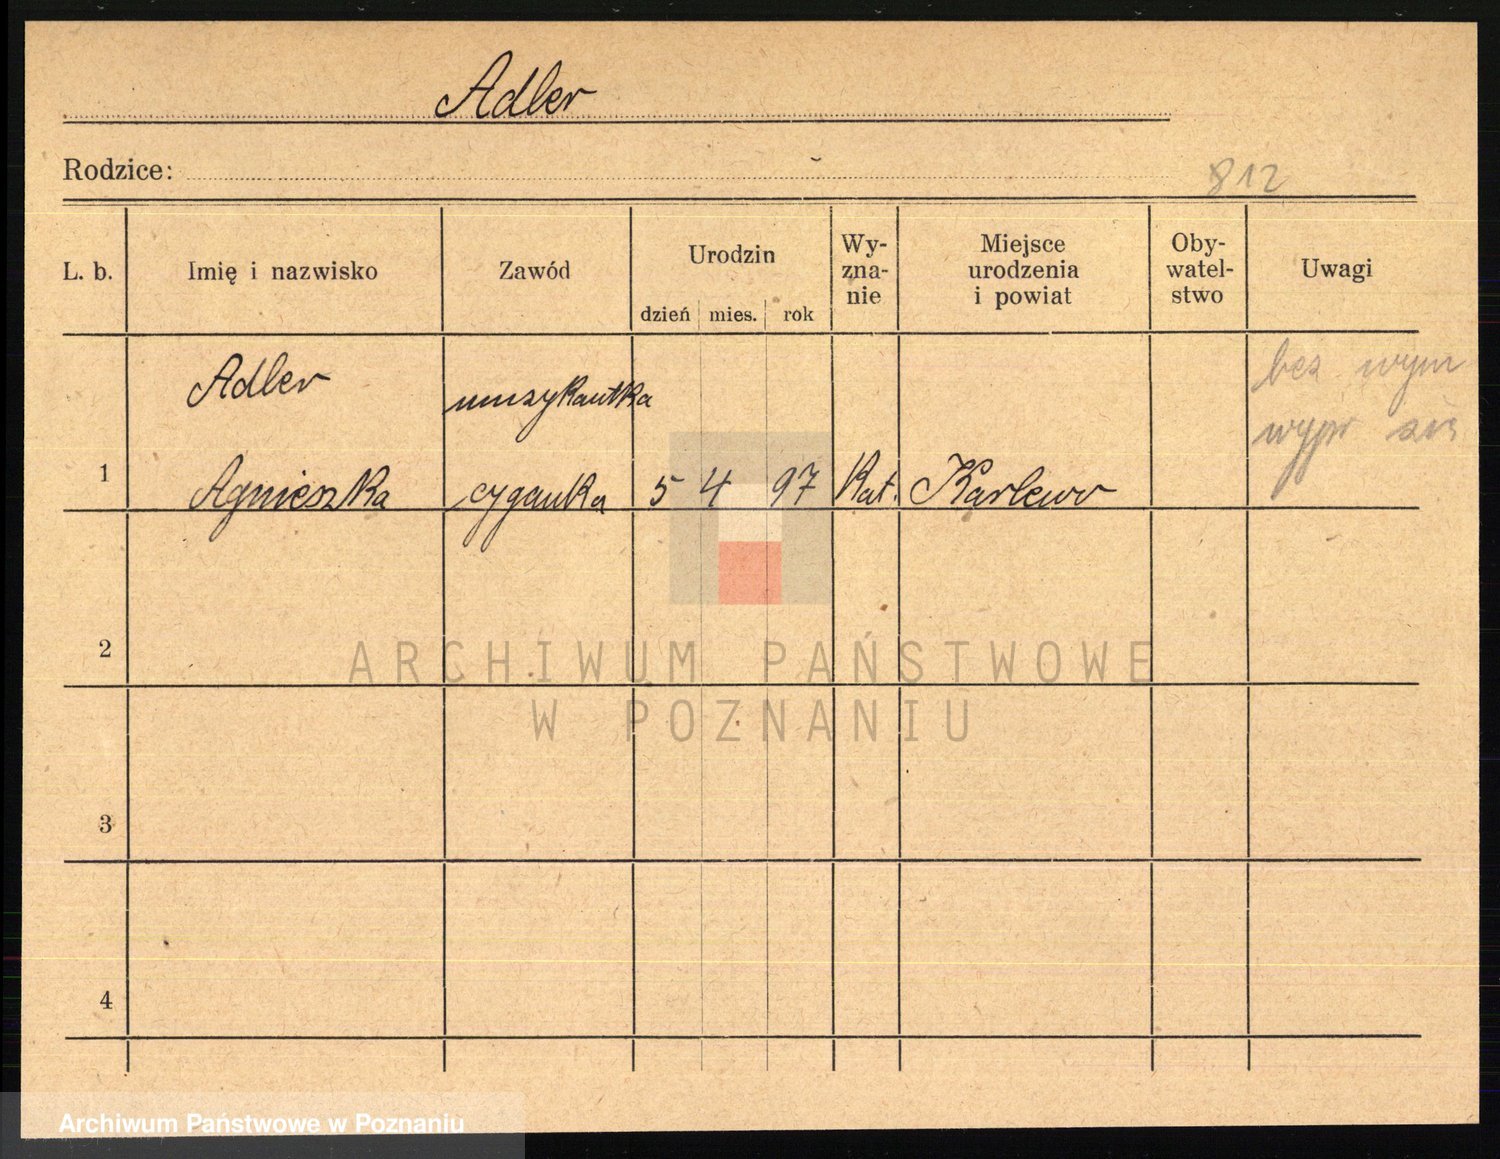 Adler
Rodzice:
812
L. b. Imię i nazwisko Zawód Urodzin dzień mies. rok Wy-zna-nie Miejsce urodzenia i powiat Oby-watel-stwo Uwagi
Adler muzykantka bez wym
wypr się
1 Agnieszka cyganka 5 4 97 Kat. Karlewo
2
3
4
ARCHIWUM PAŃSTWOWE
W POZNANIU
Archiwum Państwowe w Poznaniu